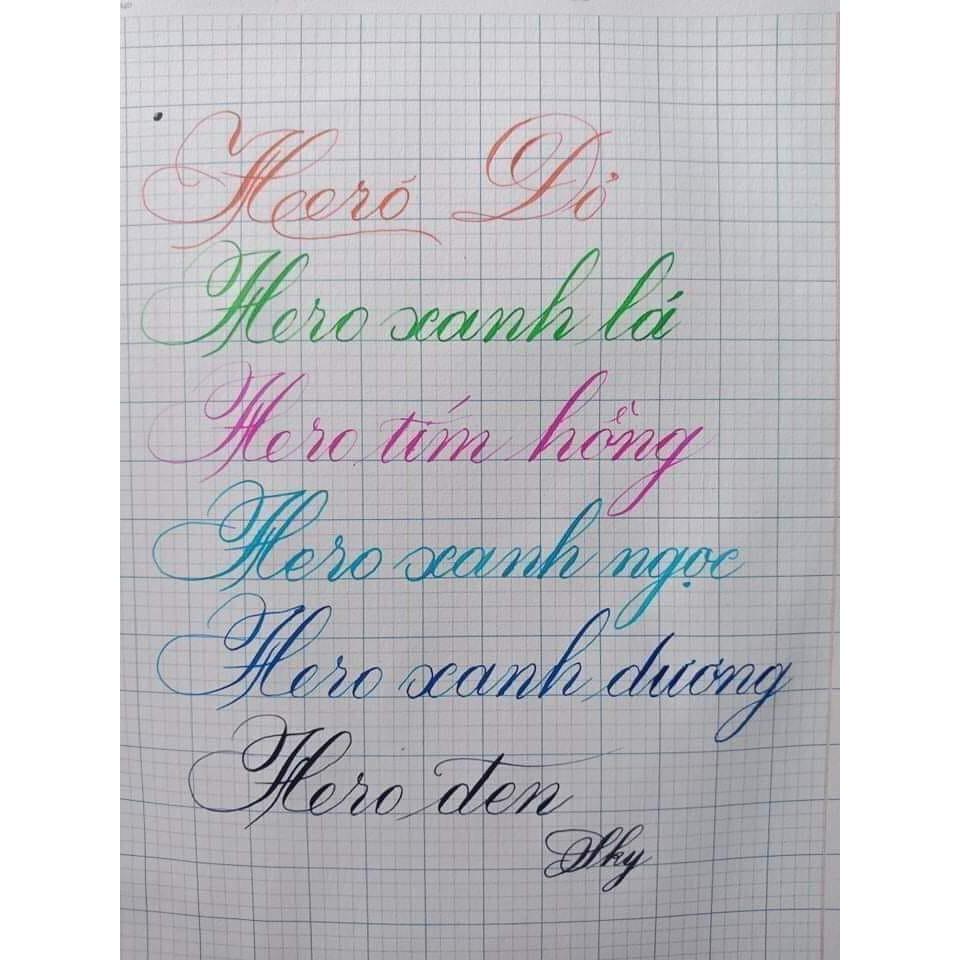 Heeró Đỏ
Hero xanh lá
Hero tím hồng
Hero xanh ngọc
Hero xanh dương
Hero đen
Sky